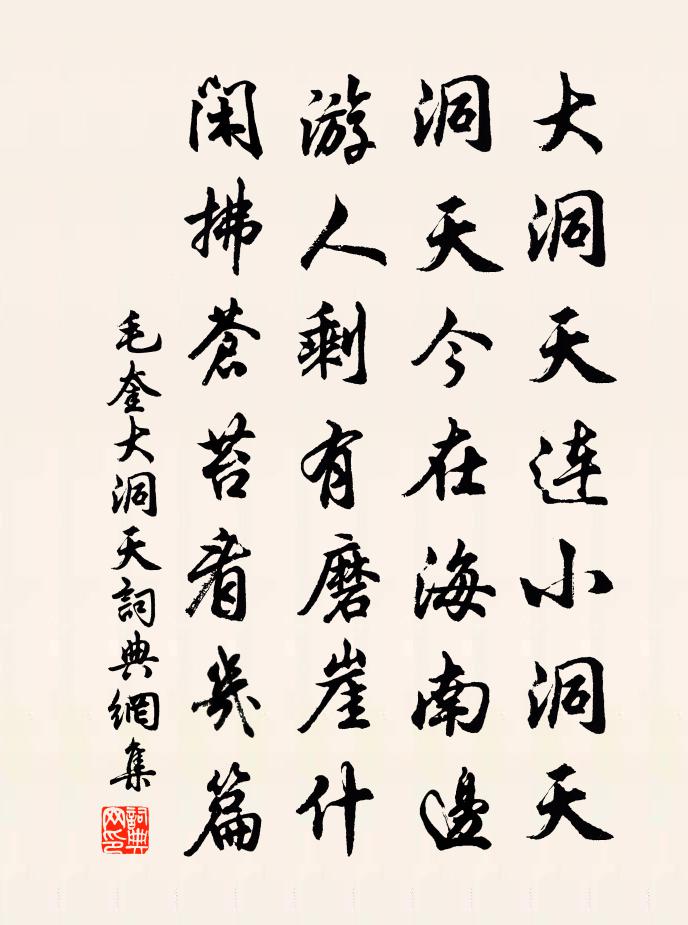 大洞天连小洞天
洞天今在海南邊
游人剩有磨崖什
闲拂苍苔看幾篇
毛奎大洞天詞典網集
詞典网印